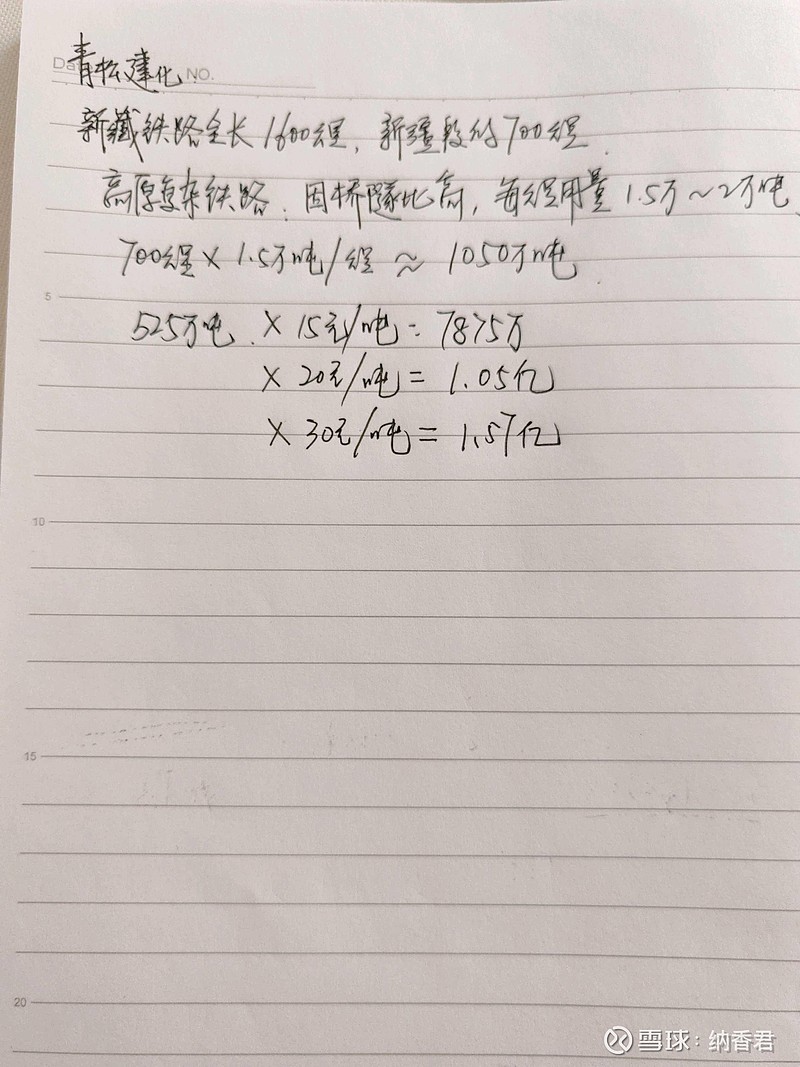 Da
NO.
青松建化
新藏铁路全长1600公里,新疆段约700公里.
高原复杂铁路:因桥隧比高,每公里用量1.5万~2万吨、
700公里×1.5万吨/公里≈1050万吨.
5
525万吨.×15元/吨=7875万
×20元/吨=1.05亿
×30元/吨=1.57亿
10
15
20
雪球:纳香君